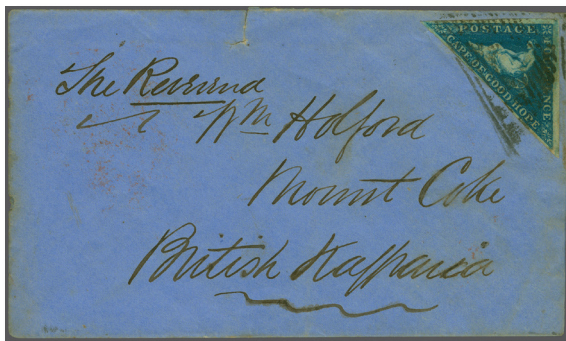 POSTAGE
CAPE OF GOOD HOPE
FOUR PENCE
The Reverend
Wm Holford
Mount Coke
British Kaffraria